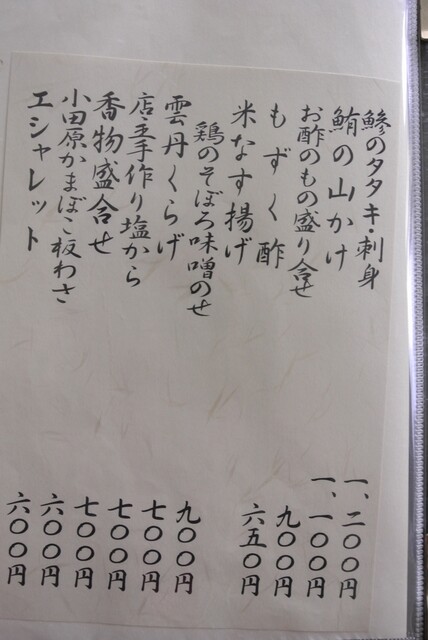 鯵のタタキ・刺身 一、二〇〇円
鮪の山かけ 一、一〇〇円
お酢のもの盛り合せ 九〇〇円
もずく酢 六五〇円
米なす揚げ
鶏のそぼろ味噌のせ 九〇〇円
雲丹くらげ 七〇〇円
店主手作り塩から 七〇〇円
香物盛合せ 七〇〇円
小田原かまぼこ板わさ 六〇〇円
エシャレット 六〇〇円